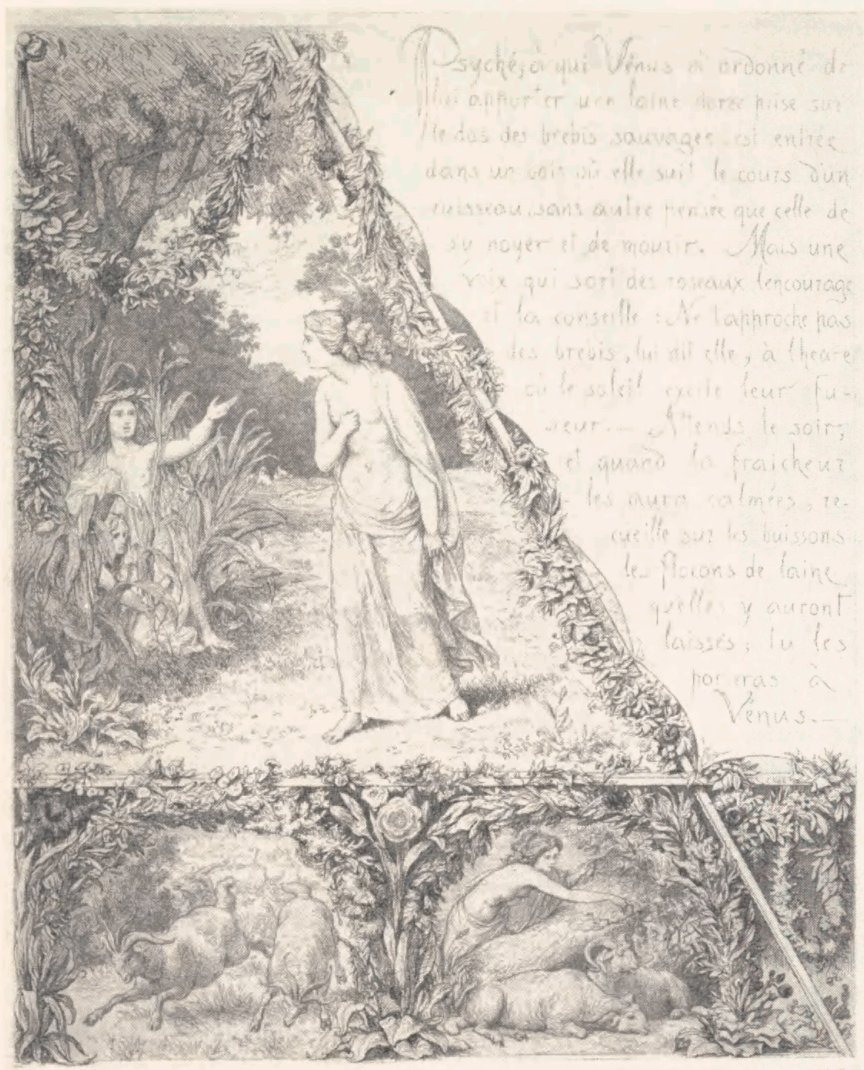 Psyché, à qui Vénus a ordonné de
lui apporter une laine dorée prise sur
le dos des brebis sauvages est entrée
dans un bois où elle suit le cours d'un
ruisseau, sans autre pensée que celle de
s'y noyer et de mourir. Mais une
voix qui sort des roseaux l'encourage
et la conseille : Ne t'approche pas
des brebis, lui dit elle, à l'heure
où le soleil excite leur fu-
reur. — Attends le soir,
et quand la fraicheur
les aura calmées, re-
cueille sur les buissons
les flocons de laine
qu'elles y auront
laissés ; tu les
porteras à
Vénus. —